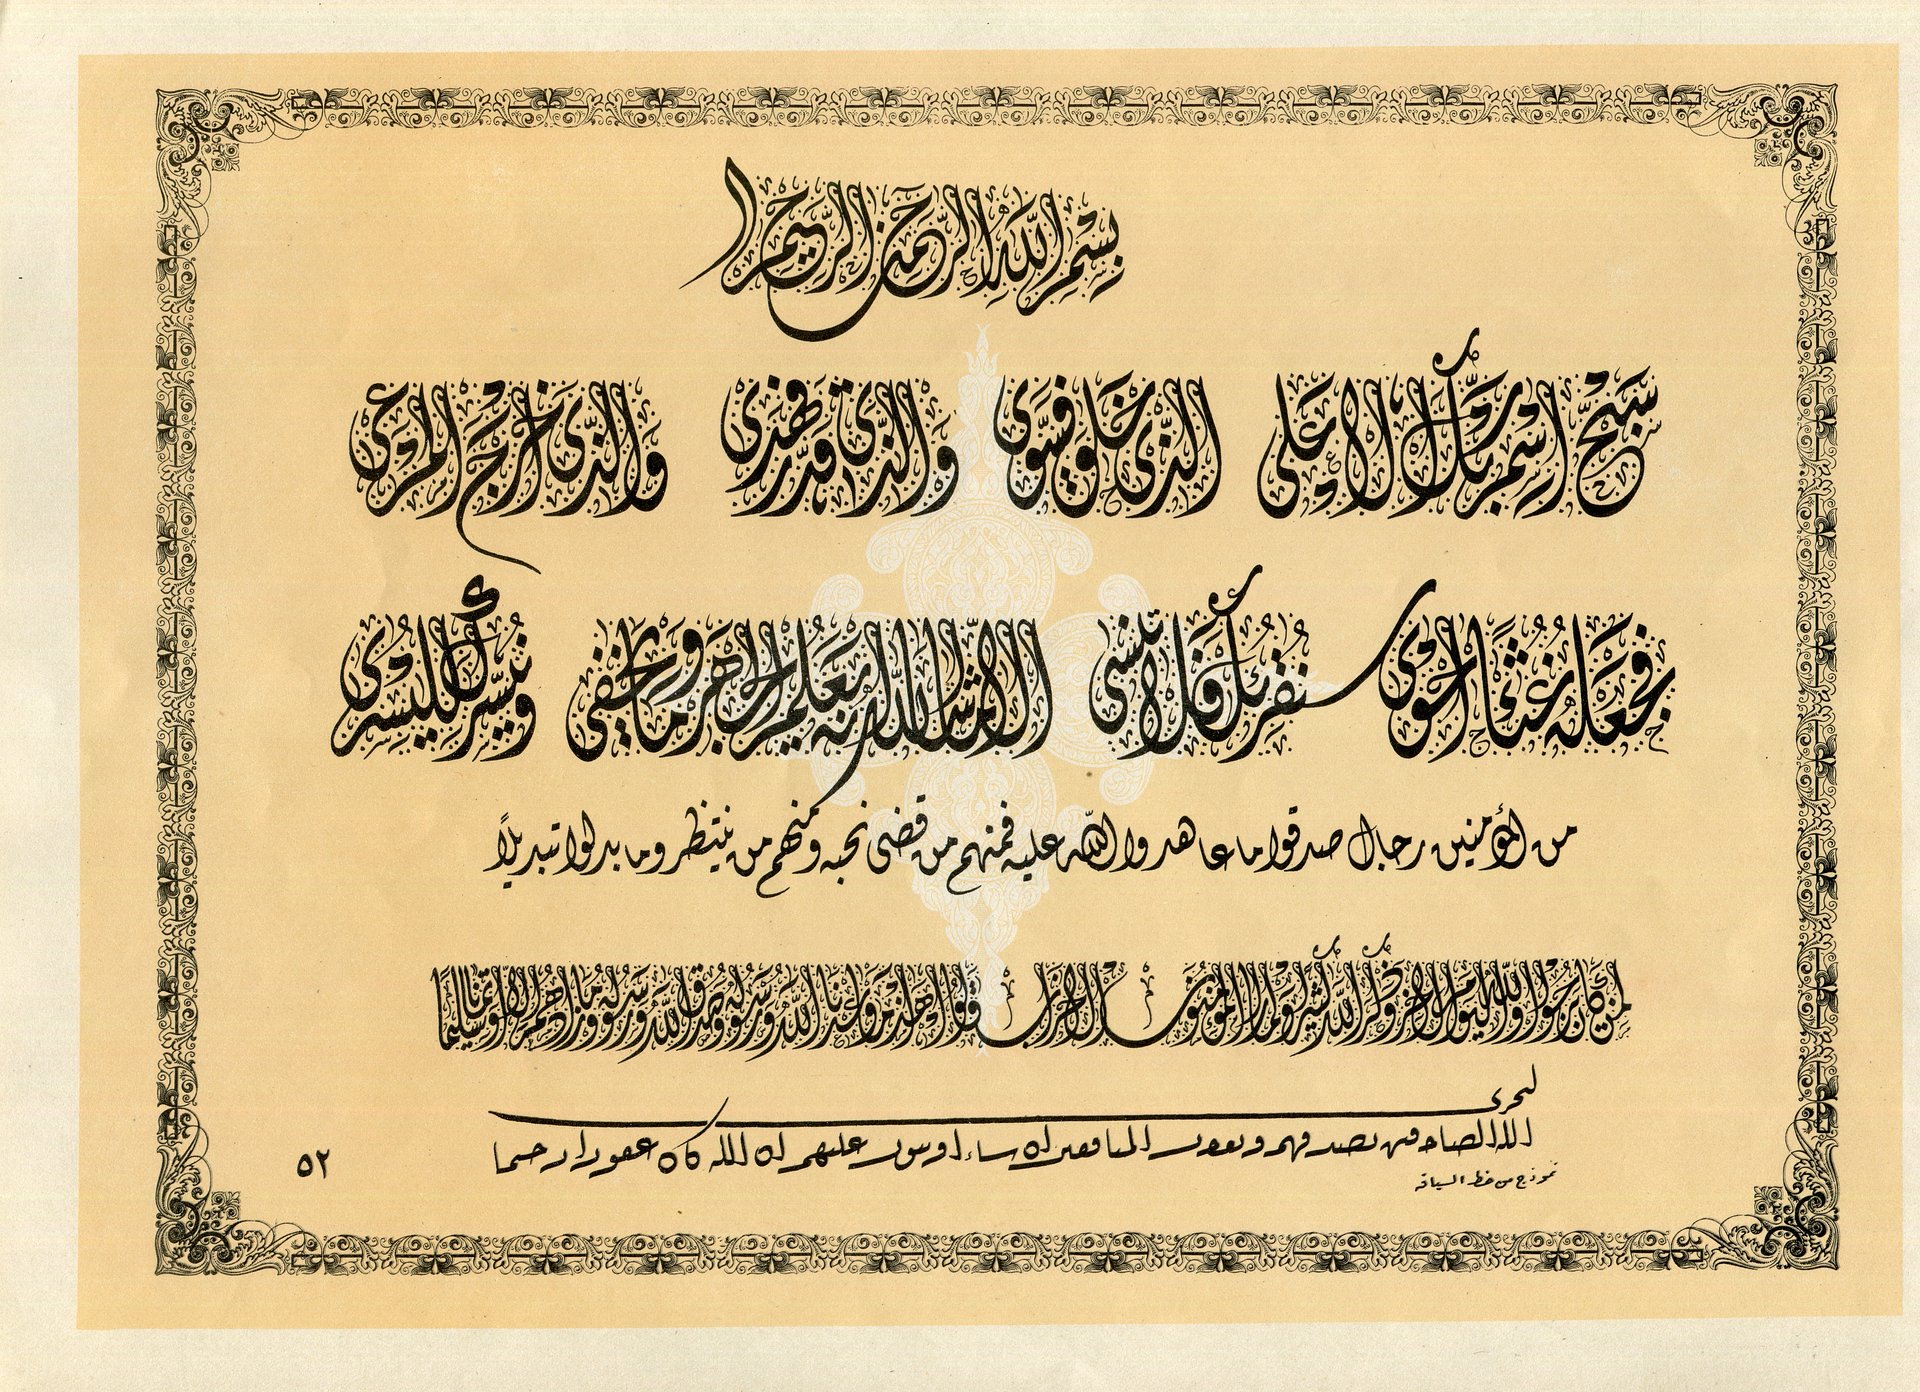 بسم الله الرحمن الرحيم
سبح اسم ربك الاعلى الذي خلق فسوى والذي قدر فهدى والذي اخرج المرعى
فجعله غثاء احوى سنقرئك فلا تنسى الا ما شاء الله انه يعلم الجهر وما يخفى ونيسرك لليسرى
من المؤمنين رجال صدقوا ما عاهدوا الله عليه فمنهم من قضى نحبه ومنهم من ينتظر وما بدلوا تبديلاً
لمن كان يرجو الله واليوم الاخر وذكر الله كثيرا ولما را المؤمنون الاحزاب قالوا هذا ما وعدنا الله ورسوله وصدق الله ورسوله وما زادهم الا ايمانا وتسليما
ليجزى
الله الصادقين بصدقهم ويعذب المنافقين ان شاء او يتوب عليهم ان الله كان غفورا رحيما
نموذج من خط السياقة
٥٢